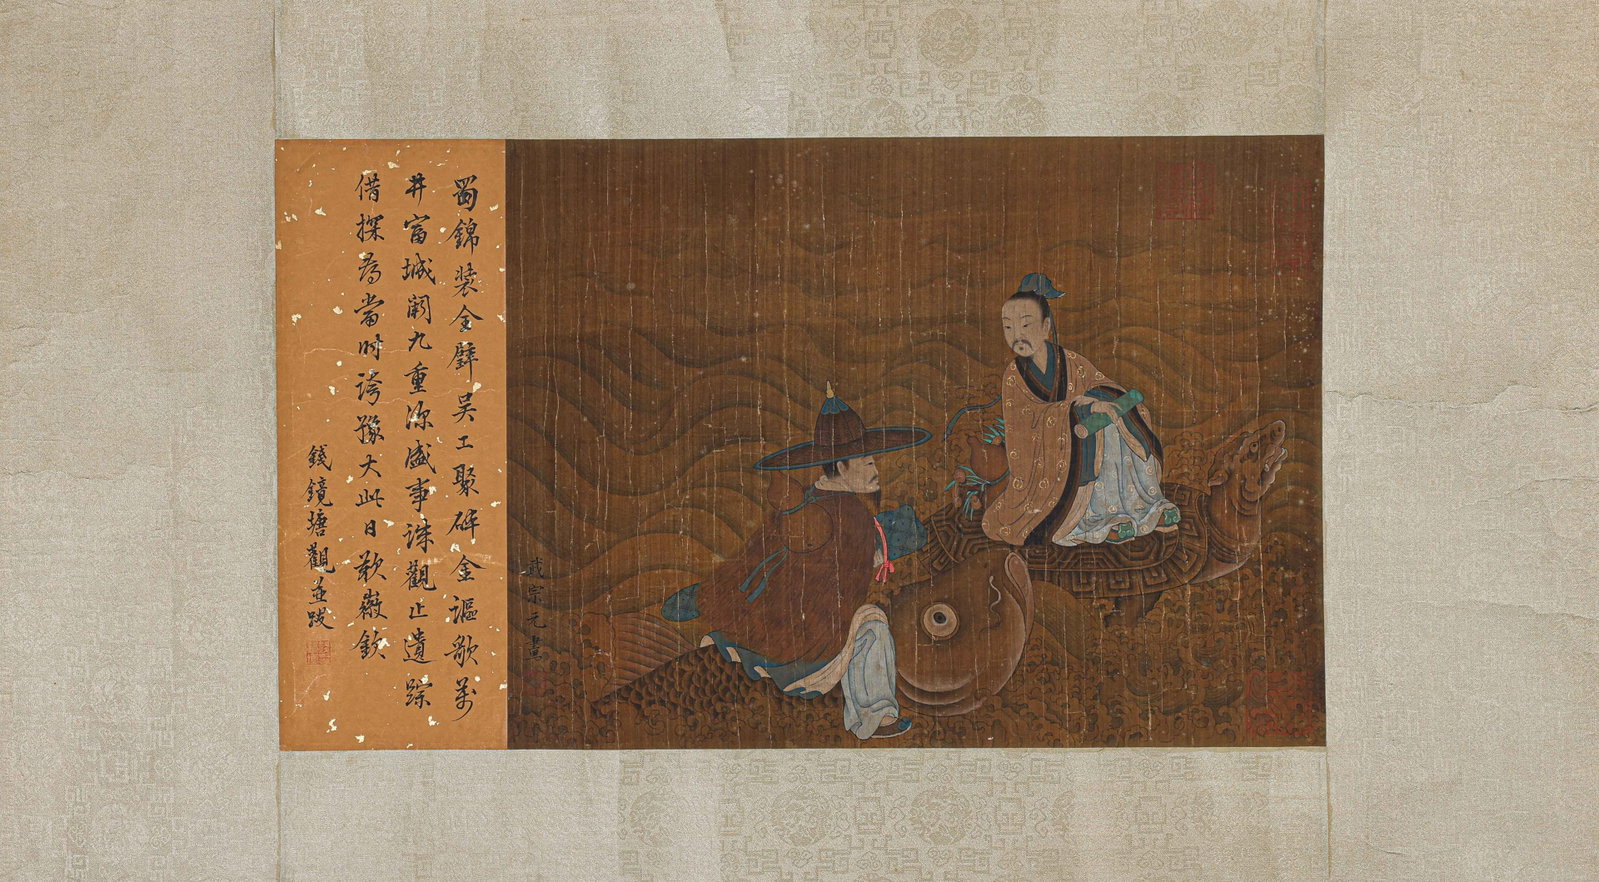 蜀錦裝金壁吴工聚碎金謳歌萬
井富城闕九重深盛事誅觀止遺踪
借探為當時誇豫大此日歎徽欽
錢鏡塘觀並跋
武宗元畫